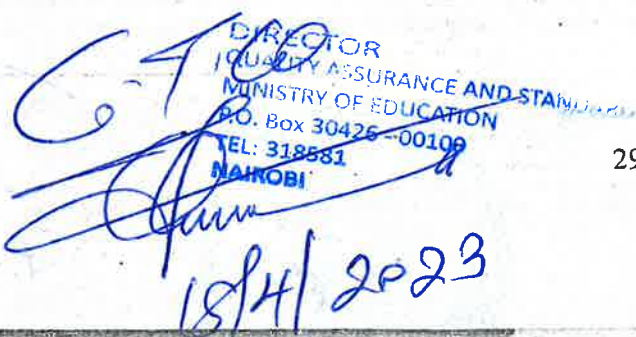 DIRECTOR
QUALITY ASSURANCE AND STANDARDS
MINISTRY OF EDUCATION
P.O. Box 30426-00100
TEL: 318581
NAIROBI
29
18/4/2023